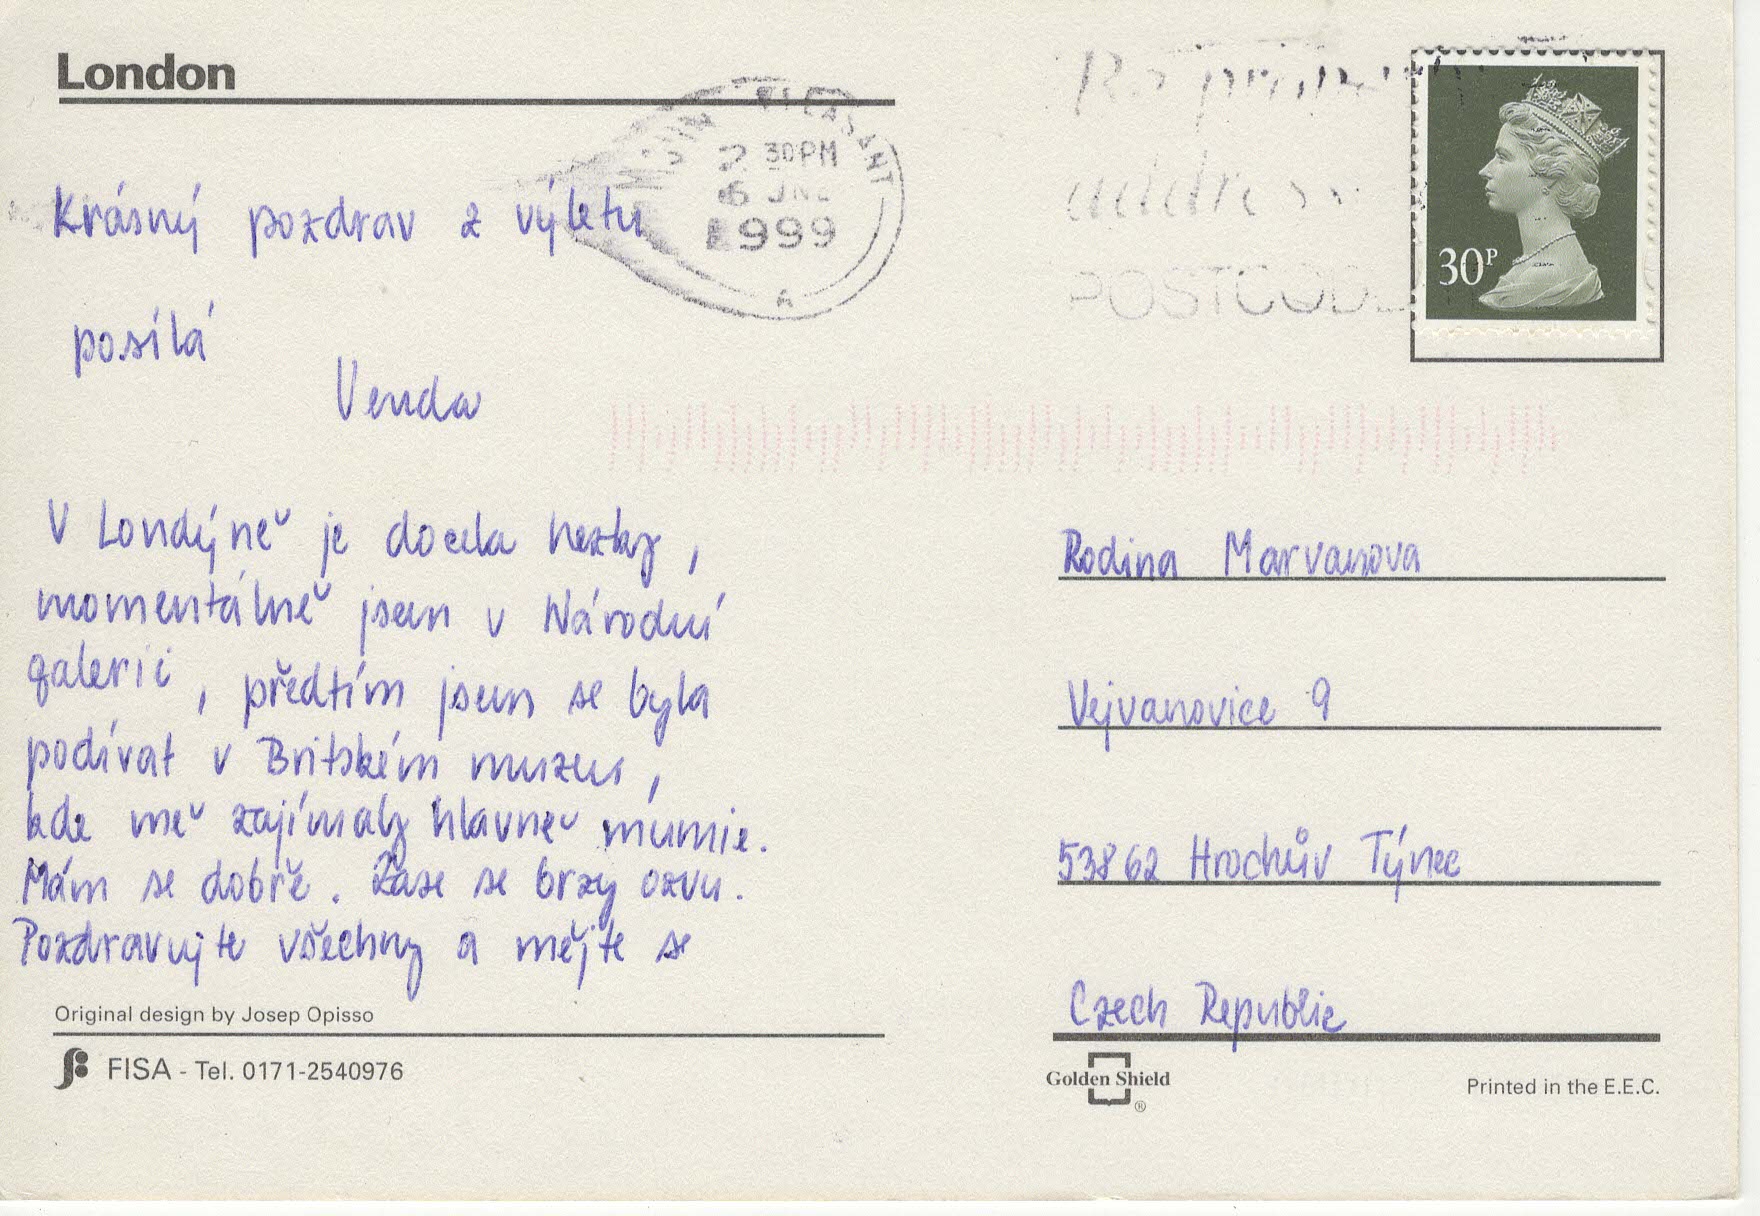 London
PLEASANT
2 30PM
6 JNE
1999
A
address
POSTCODE
30P
Krásný pozdrav z výletu
posílá
Venda
V Londýně je docela hezky,
momentálně jsem v Národní
galerii, předtím jsem se byla
podívat v Britském muzeu,
kde mě zajímaly hlavně mumie.
Mám se dobře. Zase se brzy ozvu.
Pozdravujte všechny a mějte se
Original design by Josep Opisso
FISA - Tel. 0171-2540976
Rodina Marvanova
Vejvanovice 9
53862 Hrochův Týnec
Czech Republic
Golden Shield
®
Printed in the E.E.C.